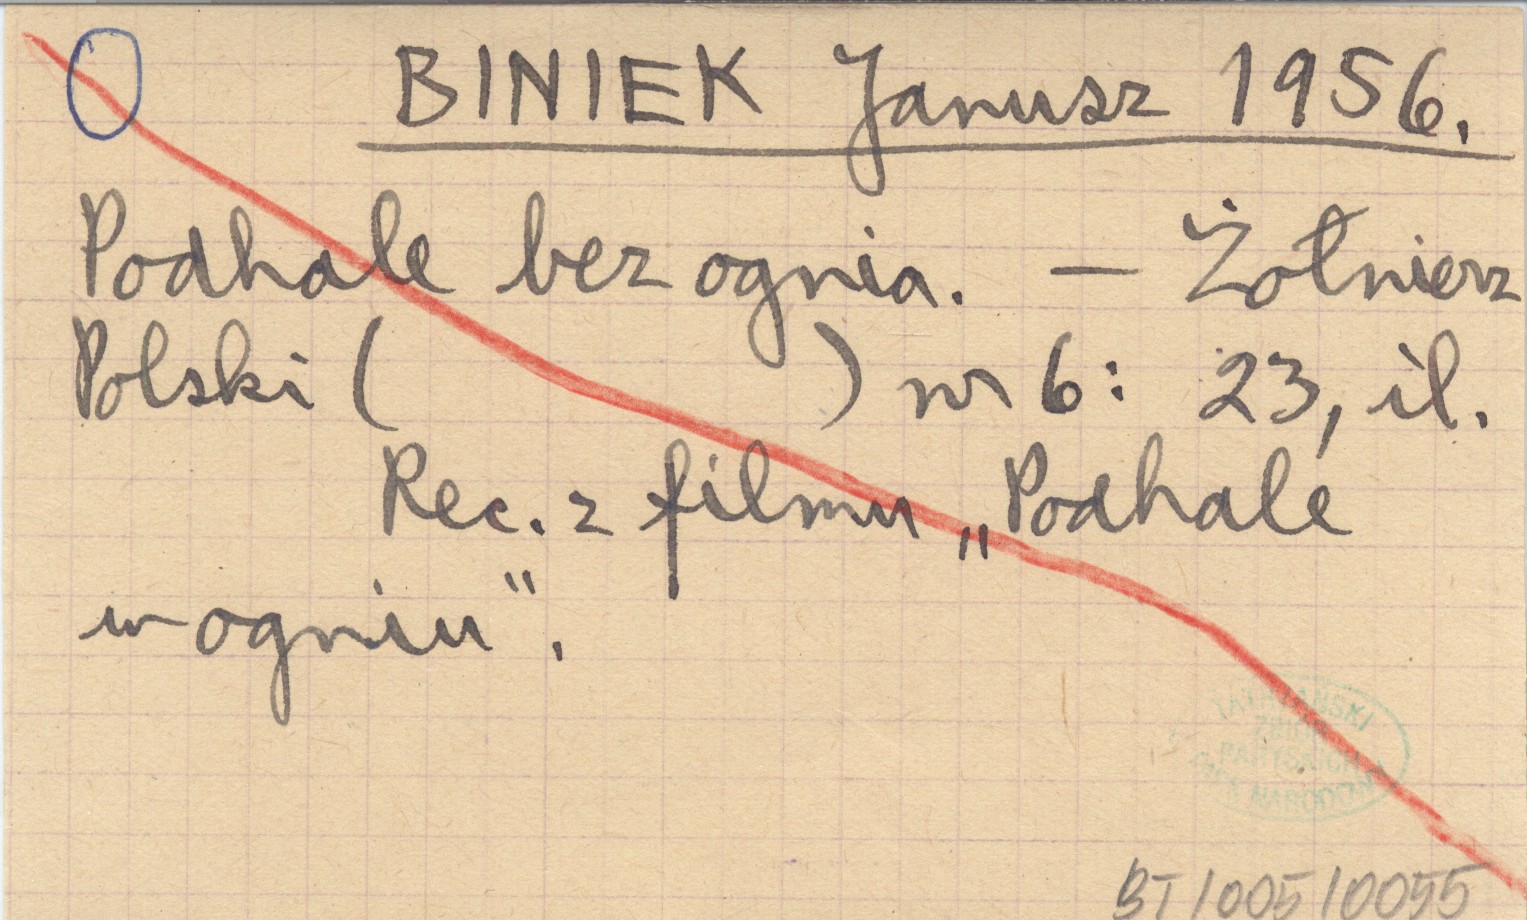 BINIEK Janusz 1956.
Podhale bez ognia. — Żołnierz
Polski (          ) nr 6: 23, il.
Rec. z filmu „Podhale
w ogniu".
TATRZAŃSKI
ZBIÓR
PARYSKICH
PARK NARODOWY
BT/005/0055